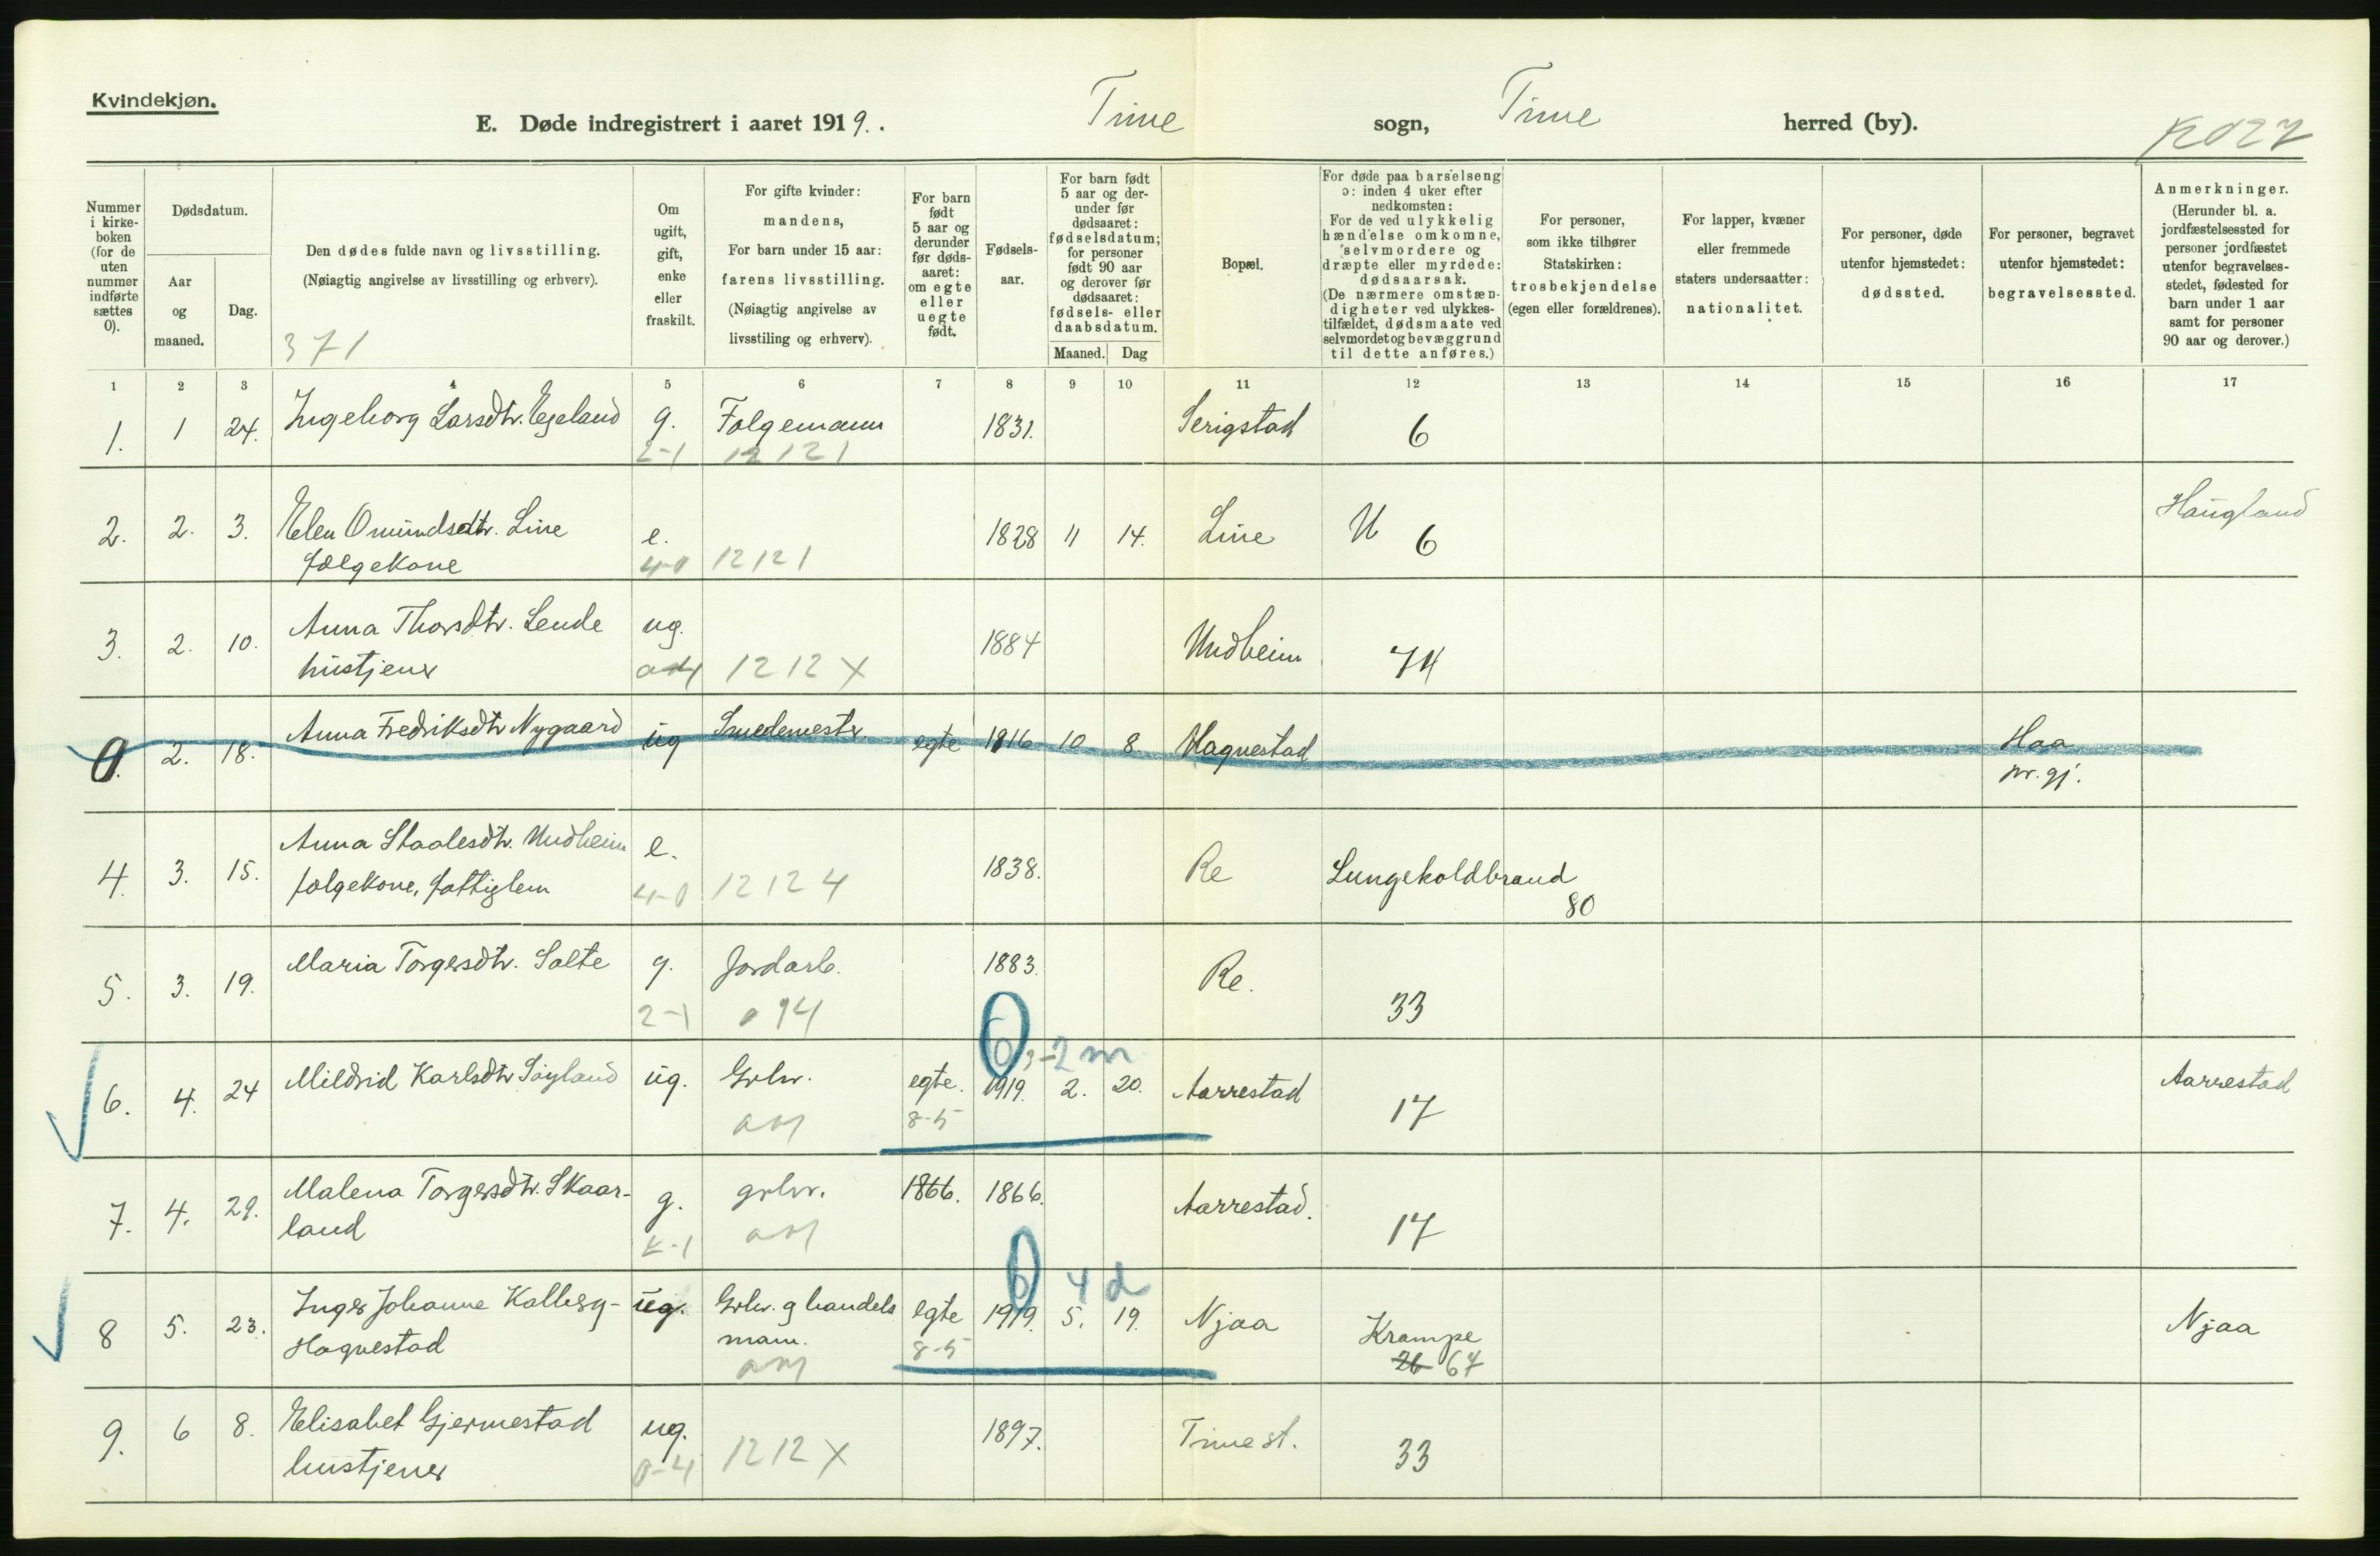 Kvindekjøn.
E. Døde indregistrert i aaret 1919. . Time sogn, Time herred (by).
Nummer i kirke-boken (for de uten nummer indførte sættes 0).
Dødsdatum.
Aar og maaned.
Dag.
Den dødes fulde navn og livsstilling.
(Nøiagtig angivelse av livsstilling og erhverv).
371
Om ugift, gift, enke eller fraskilt.
For gifte kvinder: mandens,
For barn under 15 aar: farens livsstilling.
(Nøiagtig angivelse av livsstiling og erhverv).
For barn født 5 aar og derunder før døds-aaret: om egte eller uegte født.
Fødsels-aar.
For barn født 5 aar og der-under før dødsaaret: fødselsdatum; for personer født 90 aar og derover før dødsaaret: fødsels- eller daabsdatum.
Maaned. Dag
Bopæl.
For døde paa barselseng ɔ: inden 4 uker efter nedkomsten:
For de ved ulykkelig hændelse omkomne, selvmordere og dræpte eller myrdede: dødsaarsak.
(De nærmere omstæn-digheter ved ulykkes-tilfældet, dødsmaate ved selvmordet og bevæggrund til dette anføres.)
For personer, som ikke tilhører Statskirken: trosbekjendelse (egen eller forældrenes).
For lapper, kvæner eller fremmede staters undersaatter: nationalitet.
For personer, døde utenfor hjemstedet: dødssted.
For personer, begravet utenfor hjemstedet: begravelsessted.
Anmerkninger.
(Herunder bl. a. jordfæstelsessted for personer jordfæstet utenfor begravelses-stedet, fødested for barn under 1 aar samt for personer 90 aar og derover.)
1 2 3 4 5 6 7 8 9 10 11 12 13 14 15 16 17
1. 1 24. Ingeborg Larsdtr. Egeland g. Følgemann 1831. Serigstad 6
2-1 12121
2. 2. 3. Elen Omundsdtr. Line e. 1828 11 14. Line U 6 Haugland
følgekone 4-0 12121
3. 2. 10. Anna Thorsdtr. Lende ug. 1884 Undheim 74
hustjener 1212X
0. 2. 18. Anna Fredriksdtr Nygaard ug Smedemester egte 1916 10 8. Hagnestad Haa
pr. gj.
4. 3. 15. Anna Staalesdtr. Undheim e. 1838. Re Lungekoldbrand
følgekone, fattiglem 4-0 12124 80
5. 3. 19. Maria Torgersdtr. Salte g. Jordarb. 1883. Re. 33
2-1
6 2 m
6. 4. 24 Mildrid Karlsdtr Søyland ug. Grbr. egte. 1919. 2. 20. Aarrestad 17 Aarrestad
8-5
7. 4. 29. Malena Torgersdtr. Skaar- g. grbr. 1866. 1866. Aarrestad. 17
land
6 4 d
8 5. 23. Inger Johanne Kalberg- ug. Grbr. g handels egte 1919. 5. 19. Njaa Krampe Njaa
Hognestad mann. 8-5 26 67
9. 6 8. Elisabet Gjermestad ug. 1897. Time st. 33
hustjener 0-4 1212X